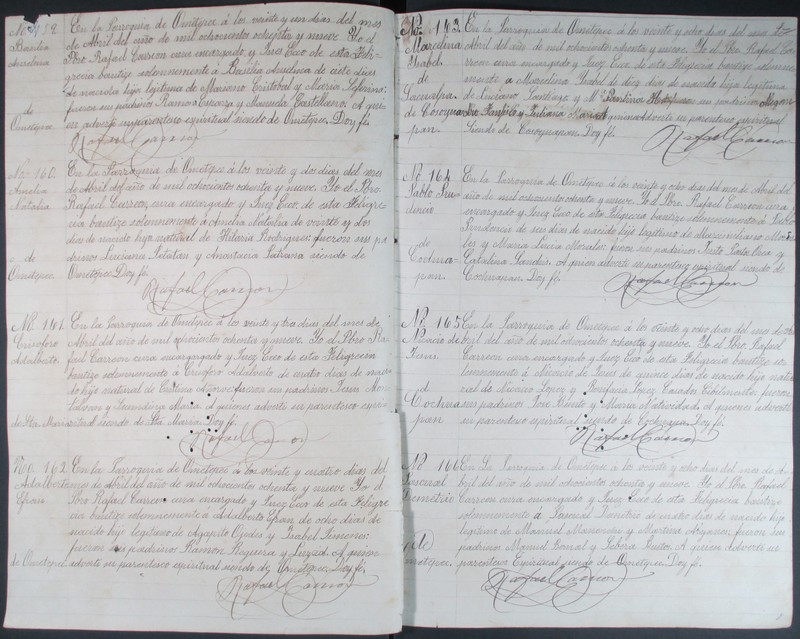 No. 159
Basilia
de
Ometepec.
En la Parroquia de Ometepec á los veinte y un dias del mes
de Abril del año de mil ochocientos ochenta y nueve. Yo el
Pbro Rafael Carreon cura encargado y Juez Ecco de esta Feli-
grecia bautize solemnemente á Basilia de siete dias
de nacida hija legitima de Mariano Cristobal y Maria
fueron sus padrinos Ramon y Manuela Castellano. A quie
nes advertí su parentesco espiritual siendo de Ometepec. Doy fé
Rafael Carreon
No. 160
Amelia
Natalia
de
Ometepec.
En la Parroquia de Ometepec á los veinte y dos dias del mes
de Abril del año de mil ochocientos ochenta y nueve. Yo el Pbro
Rafael Carreon, cura encargado y Juez Ecco de esta Feligre
cia bautize solemnemente á Amelia Natalia de veinte y dos
dias de nacida hija natural de Hilaria Rodriguez: fueron sus pa
drinos Luciano y Anastacia siendo de
Ometepec. Doy fé.
Rafael Carreon
No. 161.
Crisoforo
Adalberto
de Sta. Maria
En la Parroquia de Ometepec á los veinte y tres dias del mes de
Abril del año de mil ochocientos ochenta y nueve. Yo el Pbro Ra
fael Carreon cura encargado y Juez Ecco de esta Feligrecia
bautize solemnemente á Crisoforo Adalberto de cuatro dias de naci
do hijo natural de fueron sus padrinos Juan
y Secundina Maria. A quienes advertí su parentesco espi
ritual siendo de Sta. Maria. Doy fé.
Rafael Carreon
No. 162
Adalberto
Efran.
de Ometepec.
En la Parroquia de Ometepec á los veinte y cuatro dias del
mes de Abril del año de mil ochocientos ochenta y nueve. Yo el
Pbro Rafael Carreon cura encargado y Juez Ecco de esta Feligre
cia bautize solemnemente á Adalberto Efran de ocho dias de
nacido hijo legitimo de Agapito y Isabel
fueron sus padrinos Ramon Reguera y A quien
advertí su parentesco espiritual siendo de Ometepec. Doy fé.
Rafael Carreon
No. 163.
Marcelina
Isabel
de
de Cosoyoapan.
En la Parroquia de Ometepec á los veinte y ocho dias del mes de
Abril del año de mil ochocientos ochenta y nueve. Yo el Pbro Rafael Ca
rreon cura encargado y Juez Ecco de esta Feligrecia bautize solemne
mente á Marcelina Isabel de diez dias de nacida hija legitima
de Luciano Santiago y Ma. sus padrinos
y Juliana advertí su parentesco espiritual
siendo de Cosoyoapan. Doy fé.
Rafael Carreon
No. 164
Pablo Pru
dencio
de
Cochoapan.
En la Parroquia de Ometepec á los veinte y ocho dias del mes de Abril del
año de mil ochocientos ochenta y nueve. Yo el Pbro. Rafael Carreon cura
encargado y Juez Ecco de esta Feligrecia bautize solemnemente á Pablo
Prudencio de un dias de nacido hijo legitimo de Maximiliano Mora
les y Maria Luisa Morales: fueron sus padrinos Justo y
Catalina Sanchez. A quien advertí su parentesco espiritual siendo de
Cochoapan. Doy fé.
Rafael Carreon
No. 165
Nicacio de
Juan
de
Cochoa
pan
En la Parroquia de Ometepec á los veinte y ocho dias del mes de A
bril del año de mil ochocientos ochenta y nueve. Yo el Pbro. Rafael
Carreon cura encargado y Juez Ecco de esta Feligrecia bautize so
lemnemente á Nicacio de Juan de quince dias de nacido hijo natu
ral de Nicacio Lopez y Bonifacia Lopez Casados Civilmente: fueron
sus padrinos José Benito y Maria Natividad. A quienes advertí
su parentesco espiritual siendo de Cochoapan. Doy fé.
Rafael Carreon
No 166
Pascual
Demetrio
de
Ometepec.
En la Parroquia de Ometepec á los veinte y ocho dias del mes de A
bril del año de mil ochocientos ochenta y nueve. Yo el Pbro. Rafael
Carreon cura encargado y Juez Ecco de esta Feligrecia bautize
solemnemente á Pascual Demetrio de cuatro dias de nacido hijo
legitimo de Manuel y Martina fueron sus
padrinos Manuel y A quien advertí su
parentesco Espiritual siendo de Ometepec. Doy fé.
Rafael Carreon